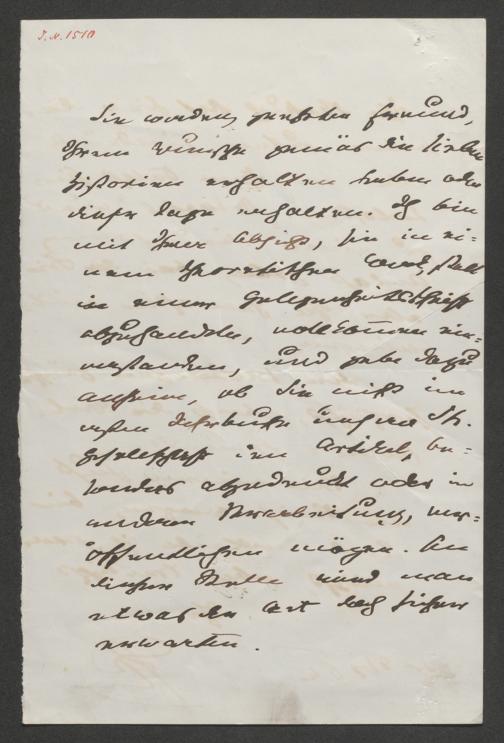 J.N. 1510
Sie werden, geehrter Freund,
Ihrem Wunsche gemäs die lieben
Historien erhalten haben oder
dieser Tage erhalten. Ich bin
mit Ihrer Absicht, sie in ei-
nem theoretischen Werk, statt
in einer Gelegenheitsschrift
abzuhandeln, vollkommen ein-
verstanden, und gebe dazu
anheim, ob Sie nicht im
ersten Jahrbuche unserer Sh.
Gesellschaft den Artikel, be-
sonders abgedruckt oder in
anderer Verarbeitung, ver-
öffentlichen mögen. An
dieser Stelle wird man
etwas der Art doch sicher
erwarten.